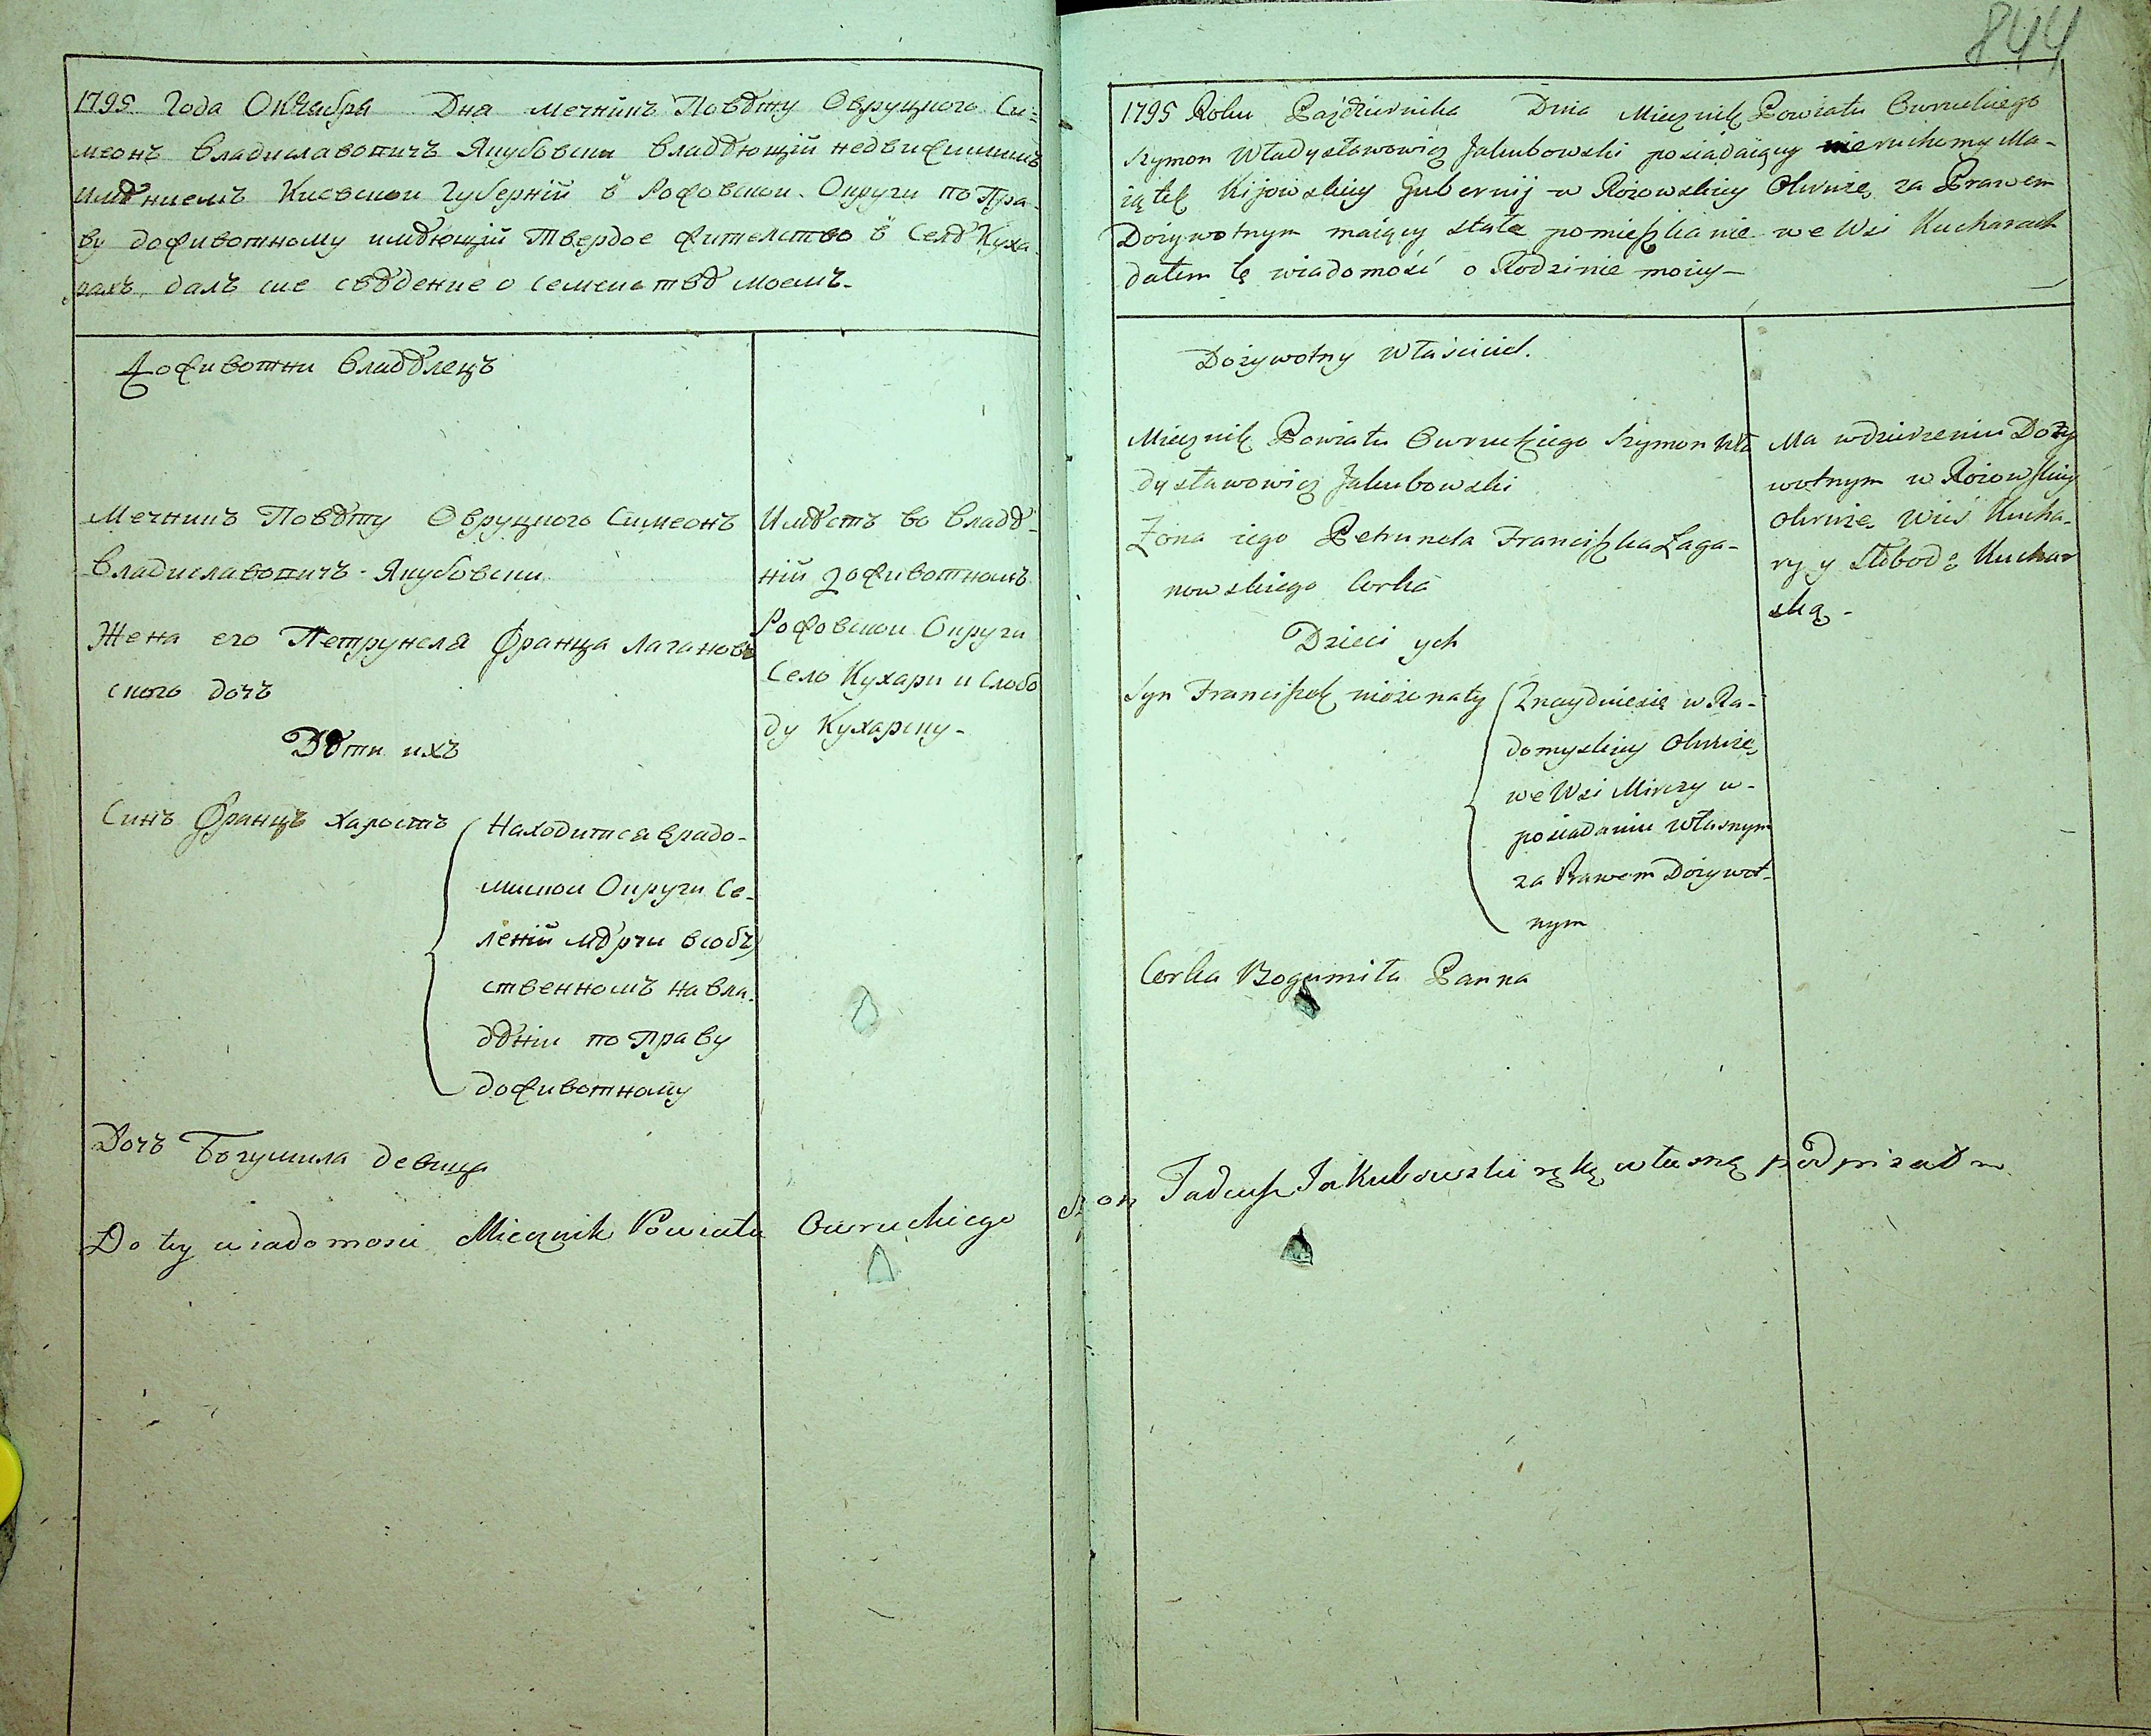 844
1795 Года Октября Дня мечникъ Повѣту Овруцкого Си=
меонъ Владиславовичъ Якубовски владѣющій недвижимимъ
имѣниемъ Киевской Губерніи в Рожовской Округи по Пра-
ву доживотному имѣющій твердое жителство в Селѣ Куха
рахъ далъ сие свѣдение о семействѣ моемъ.
Доживотни владѣлецъ
Мечникъ Повѣту Овруцкого Симеонъ
Владиславовичъ Якубовски
Жена его Петрунеля Франца Лагановъ
ского дочъ
Дѣти ихъ
Синъ Францъ холостъ
Находится в радо-
миской Округи Се-
леніи Мѣрчи в соб
ственномъ на вла-
дѣніи по Праву
доживотному
Дочъ Богумила девица
Имѣетъ во владѣ-
ніи доживотномъ
Рожовской Округи
Село Кухари и Слобо
ду Кухарску-
1795 Roku Październiku Dnia Miecznik Powiatu Owruckiego
Szymon Władysławowicz Jakubowski posiadaiący nieruchomy Ma-
iątek Kijowskiey Gubernij w Rożowskiey Okruże za Prawem
Dożywotnym maiący stałe pomieszkanie we Wsi Kucharach
dałem tę wiadomość o Rodzinie moiey-
Dożywotny Właściciel.
Miecznik Powiatu Owruckiego Szymon Wła
dysławowicz Jakubowski
Żona iego Petrunela Franciszka Łaga-
nowskiego Corka
Dzieci ych
Syn Franciszek nieżonaty
Znayduiesię w Ra-
domyskiey Okruże
we Wsi Mirczy w-
posiadaniu własnym
za Prawem Dożywot-
nym
Corka Bogumiła Panna
Ma wdzierzeniu Doży
wotnym w Rożowskiey
Okruże Wieś Kucha-
ry y Słobodę Kuchar
ską-
Do tey wiadomosci Miecznik Powiatu Owruckiego Szon Tadeusz Jakubowski ręką własną podpisałem